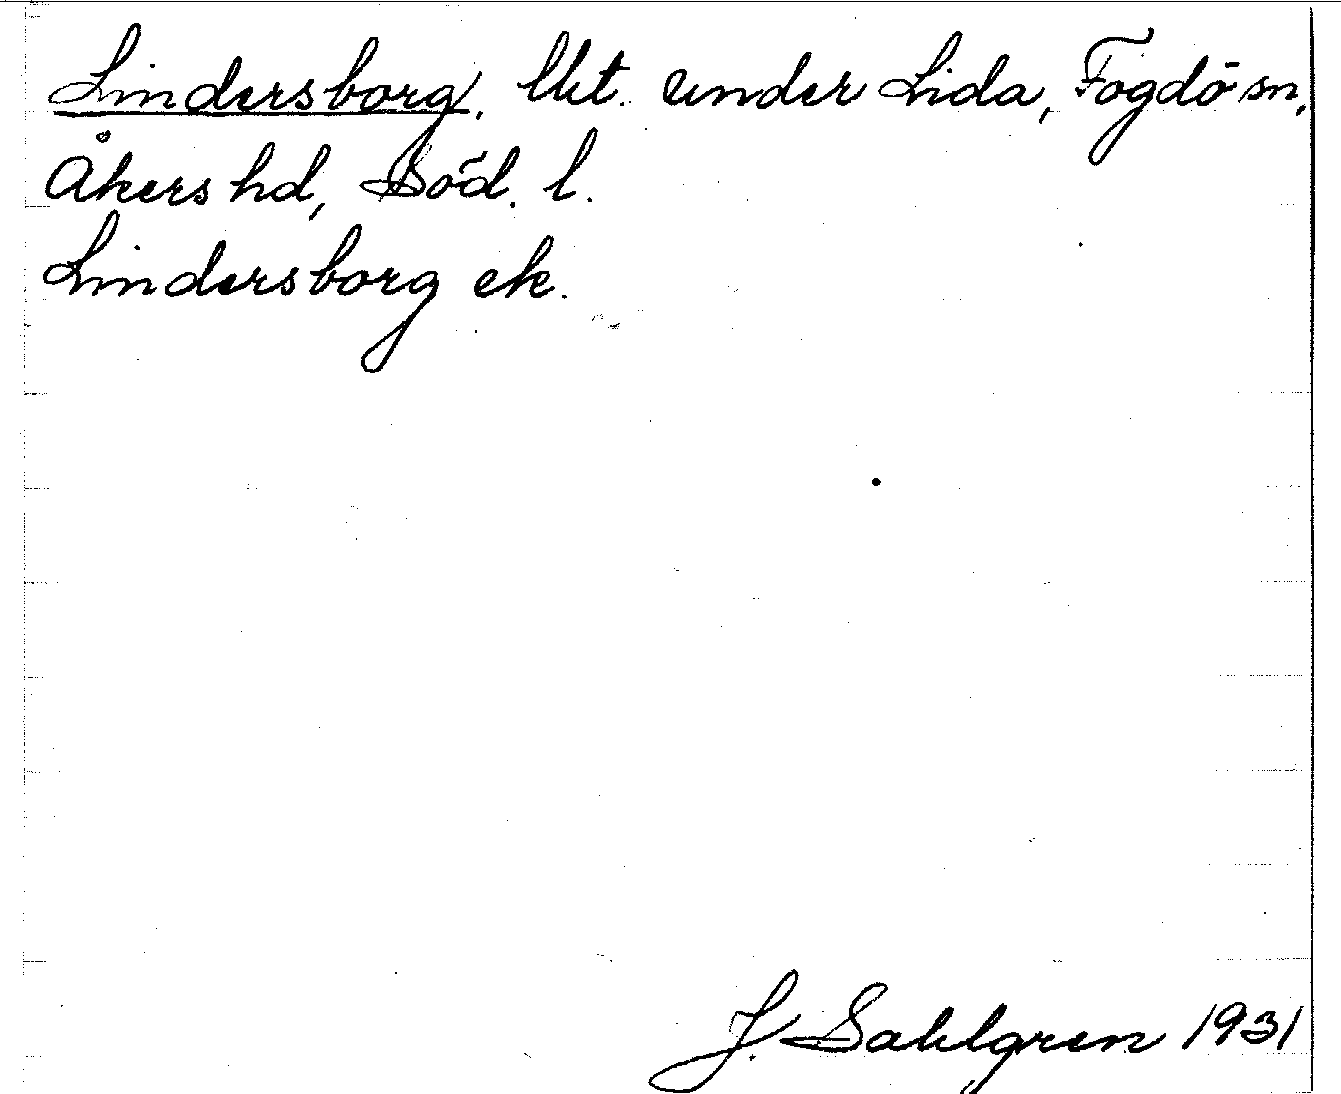 Lindersborg, lht. under Lida, Fogdö sn,
Åkers hd, Söd. l.
Lindersborg ek.
J. Sahlgren 1931